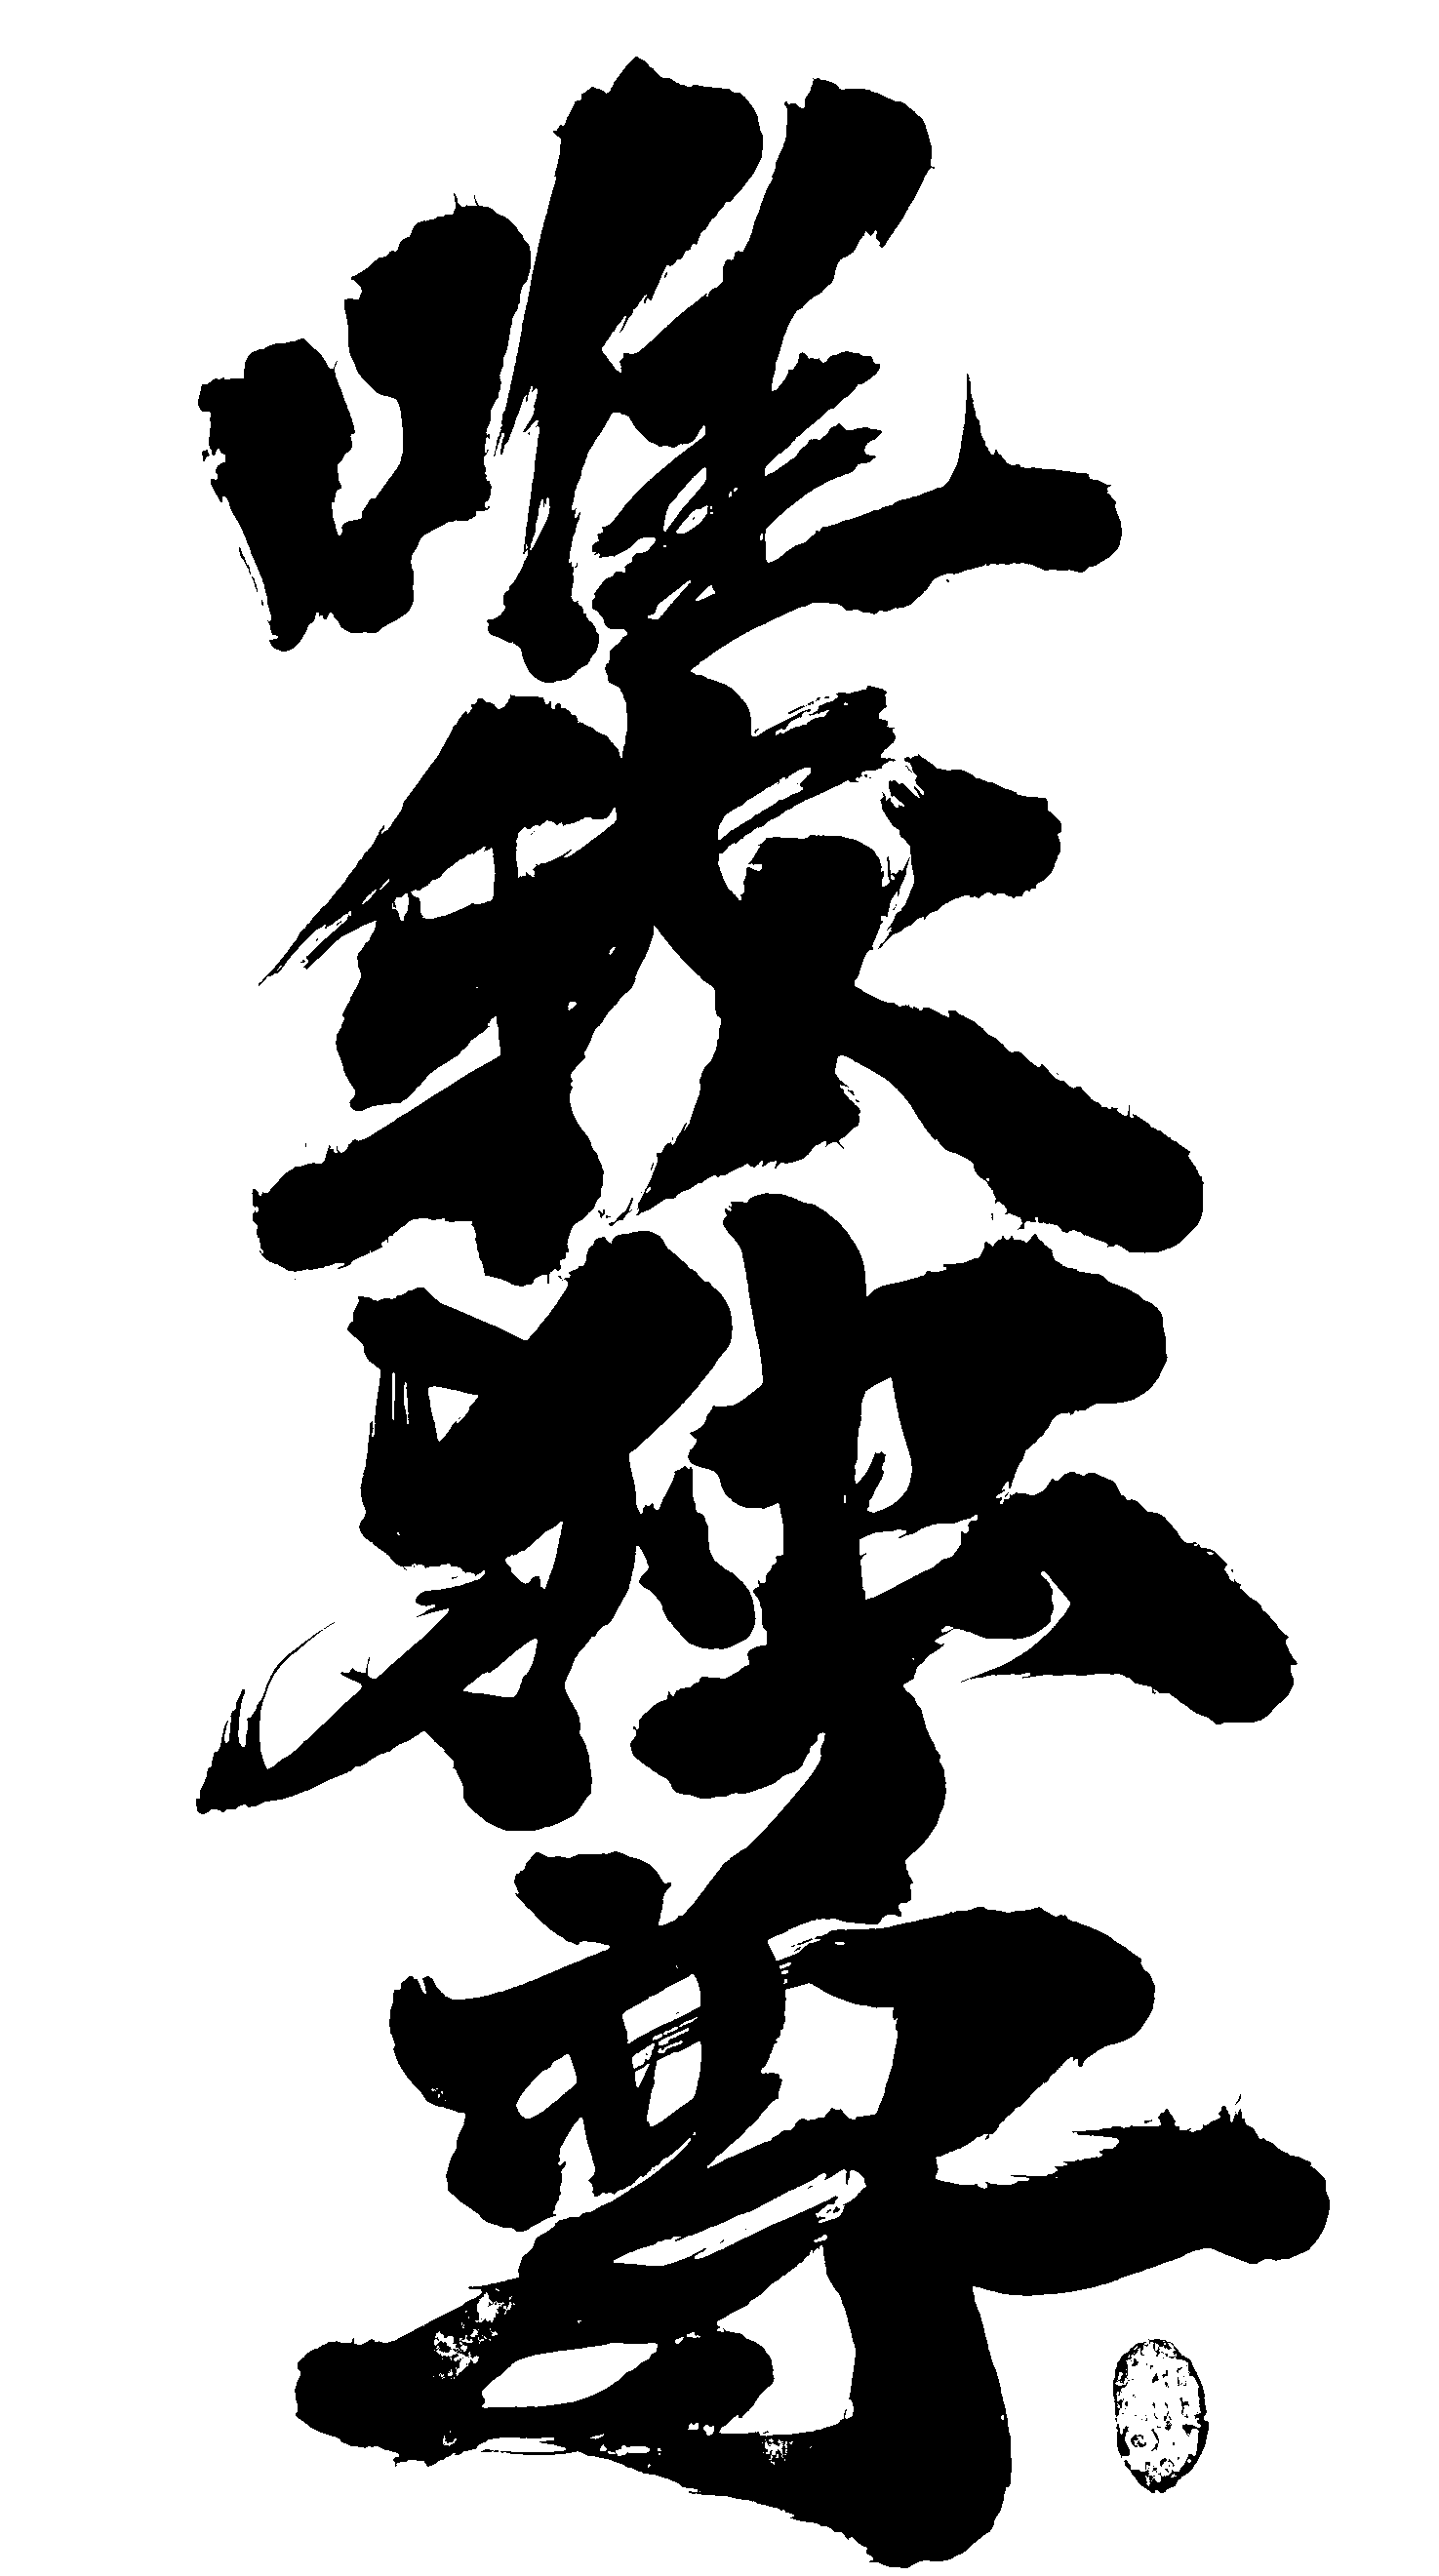 唯我独尊